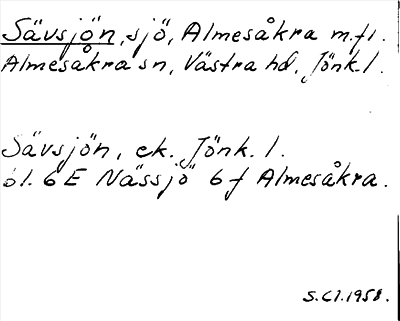 Sävsjön, sjö, Almesåkra m.fl.
Almesåkra sn, Västra hd, Jönk.l.
Sävsjön, ek. Jönk. l.
bl. 6E Nässjö 6f Almesåkra.
S.Cl.1958.